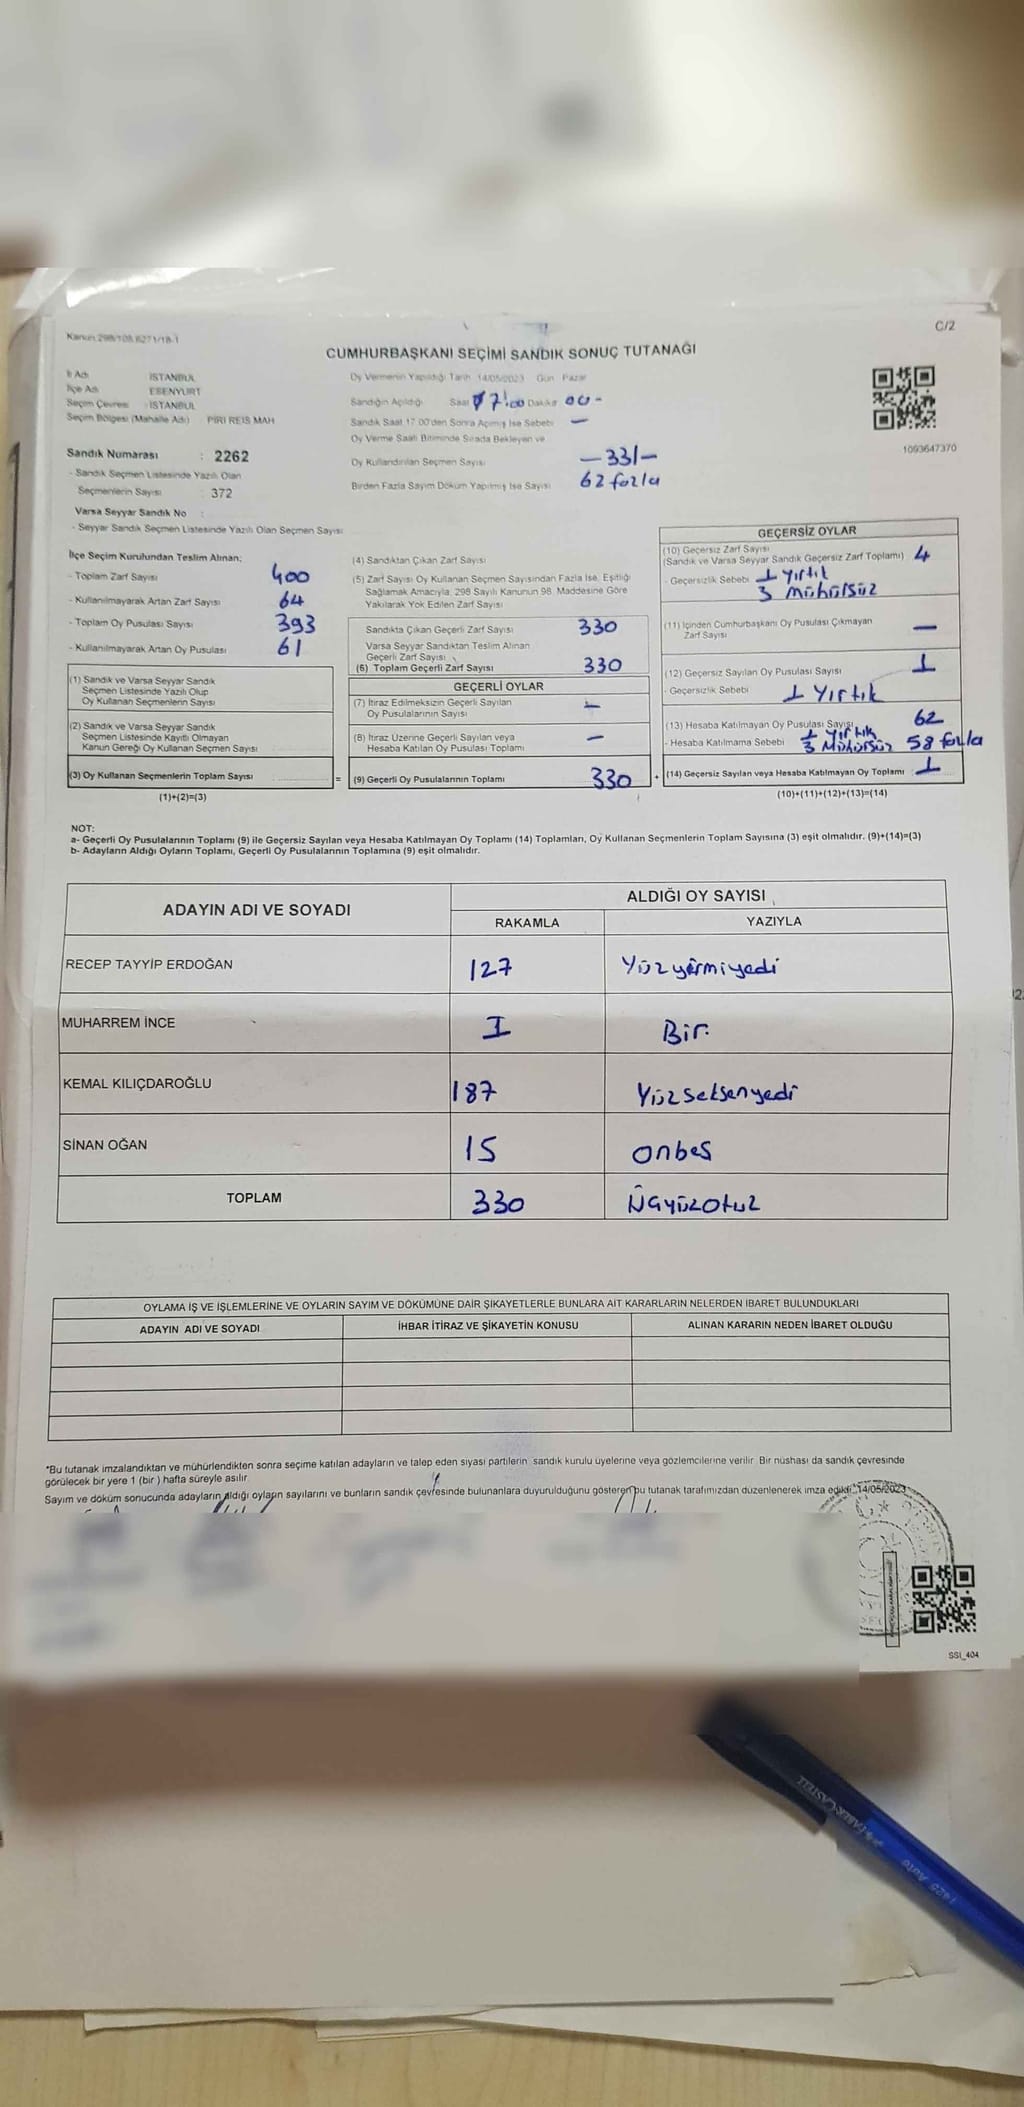 Kanun:298/105,6271/18-1
C/2
CUMHURBAŞKANI SEÇİMİ SANDIK SONUÇ TUTANAĞI
İl Adı İSTANBUL
İlçe Adı ESENYURT
Seçim Çevresi : İSTANBUL
Seçim Bölgesi (Mahalle Adı) PİRİ REİS MAH
Sandık Numarası : 2262
- Sandık Seçmen Listesinde Yazılı Olan
Seçmenlerin Sayısı : 372
Varsa Seyyar Sandık No :
- Seyyar Sandık Seçmen Listesinde Yazılı Olan Seçmen Sayısı
Oy Vermenin Yapıldığı Tarih 14/05/2023 Gün Pazar
Sandığın Açıldığı Saat 17:00 Dakika 00-
Sandık Saat 17.00'den Sonra Açılmış İse Sebebi —
Oy Verme Saati Bitiminde Sırada Bekleyen ve
Oy Kullandırılan Seçmen Sayısı —331—
Birden Fazla Sayım Döküm Yapılmış İse Sayısı 62 fazla
1093647370
İlçe Seçim Kurulundan Teslim Alınan;
- Toplam Zarf Sayısı 400
- Kullanılmayarak Artan Zarf Sayısı 64
- Toplam Oy Pusulası Sayısı 393
- Kullanılmayarak Artan Oy Pusulası 61
(1) Sandık ve Varsa Seyyar Sandık
Seçmen Listesinde Yazılı Olup
Oy Kullanan Seçmenlerin Sayısı
(2) Sandık ve Varsa Seyyar Sandık
Seçmen Listesinde Kayıtlı Olmayan
Kanun Gereği Oy Kullanan Seçmen Sayısı
(3) Oy Kullanan Seçmenlerin Toplam Sayısı =
(1)+(2)=(3)
(4) Sandıktan Çıkan Zarf Sayısı
(5) Zarf Sayısı Oy Kullanan Seçmen Sayısından Fazla İse, Eşitliği
Sağlamak Amacıyla, 298 Sayılı Kanunun 98. Maddesine Göre
Yakılarak Yok Edilen Zarf Sayısı
Sandıkta Çıkan Geçerli Zarf Sayısı 330
Varsa Seyyar Sandıktan Teslim Alınan
Geçerli Zarf Sayısı
(6) Toplam Geçerli Zarf Sayısı 330
GEÇERLİ OYLAR
(7) İtiraz Edilmeksizin Geçerli Sayılan
Oy Pusulalarının Sayısı —
(8) İtiraz Üzerine Geçerli Sayılan veya
Hesaba Katılan Oy Pusulası Toplamı —
(9) Geçerli Oy Pusulalarının Toplamı 330 +
GEÇERSİZ OYLAR
(10) Geçersiz Zarf Sayısı
(Sandık ve Varsa Seyyar Sandık Geçersiz Zarf Toplamı) 4
- Geçersizlik Sebebi 1 Yırtık
3 Mühürsüz
(11) İçinden Cumhurbaşkanı Oy Pusulası Çıkmayan
Zarf Sayısı —
(12) Geçersiz Sayılan Oy Pusulası Sayısı 1
- Geçersizlik Sebebi 1 Yırtık
(13) Hesaba Katılmayan Oy Pusulası Sayısı 62
- Hesaba Katılmama Sebebi 1 Yırtık 3 Mühürsüz 58 fazla
(14) Geçersiz Sayılan veya Hesaba Katılmayan Oy Toplamı 1
(10)+(11)+(12)+(13)=(14)
NOT:
a- Geçerli Oy Pusulalarının Toplamı (9) ile Geçersiz Sayılan veya Hesaba Katılmayan Oy Toplamı (14) Toplamları, Oy Kullanan Seçmenlerin Toplam Sayısına (3) eşit olmalıdır. (9)+(14)=(3)
b- Adayların Aldığı Oyların Toplamı, Geçerli Oy Pusulalarının Toplamına (9) eşit olmalıdır.
ADAYIN ADI VE SOYADI ALDIĞI OY SAYISI
RAKAMLA YAZIYLA
RECEP TAYYİP ERDOĞAN 127 Yüzyirmiyedi
MUHARREM İNCE I Bir.
KEMAL KILIÇDAROĞLU 187 Yüzseksenyedi
SİNAN OĞAN 15 onbeş
TOPLAM 330 Üçyüzotuz
OYLAMA İŞ VE İŞLEMLERİNE VE OYLARIN SAYIM VE DÖKÜMÜNE DAİR ŞİKAYETLERLE BUNLARA AİT KARARLARIN NELERDEN İBARET BULUNDUKLARI
ADAYIN ADI VE SOYADI İHBAR İTİRAZ VE ŞİKAYETİN KONUSU ALINAN KARARIN NEDEN İBARET OLDUĞU
*Bu tutanak imzalandıktan ve mühürlendikten sonra seçime katılan adayların ve talep eden siyasi partilerin sandık kurulu üyelerine veya gözlemcilerine verilir. Bir nüshası da sandık çevresinde
görülecek bir yere 1 (bir ) hafta süreyle asılır.
Sayım ve döküm sonucunda adayların aldığı oyların sayılarını ve bunların sandık çevresinde bulunanlara duyurulduğunu gösteren bu tutanak tarafımızdan düzenlenerek imza edildi. 14/05/2023
SSİ_404
FABER-CASTELL
1425 Auto